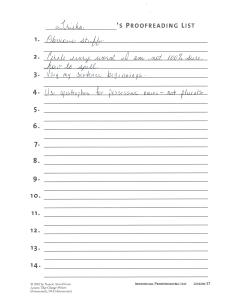 Trisha 's PROOFREADING LIST
1. Obvious stuff
2. Circle every word I am not 100% sure
how to spell.
3. Vary my sentence beginnings.
4. Use apostrophes for possessive nouns - not plurals
5.
6.
7.
8.
9.
10.
11.
12.
13.
14.
INDIVIDUAL PROOFREADING LIST LESSON 17